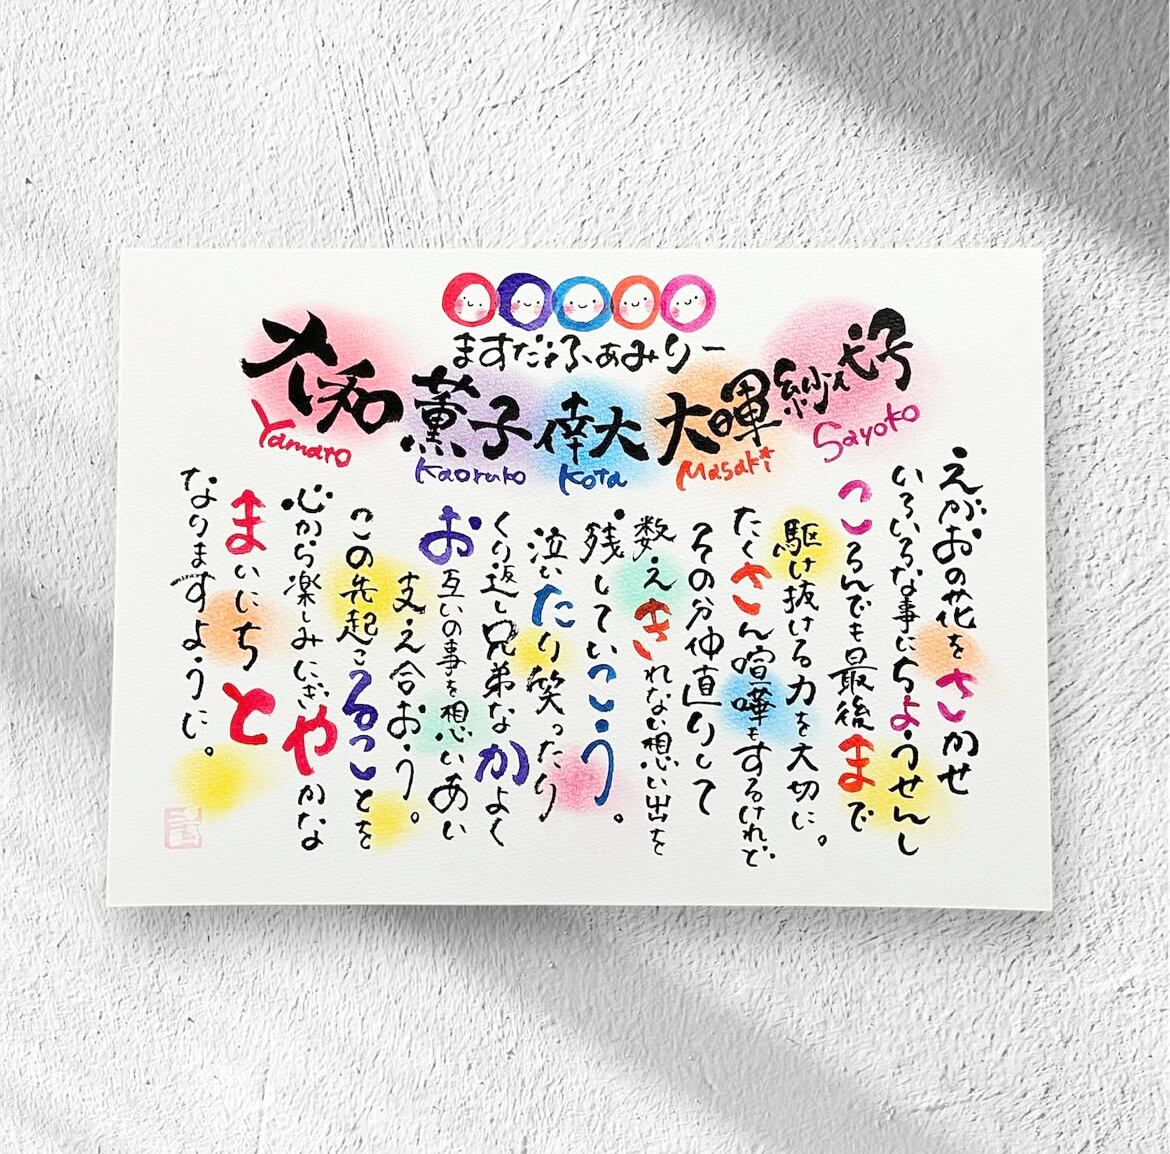 ますだ ふぁみりー
大和
Yamato
薫子
Kaoruko
倖大
Kota
大暉
Masaki
紗代子
Sayoko
えがおの花をさかせ
いろいろな事にちょうせんし
ころんでも最後まで
駆け抜ける力を大切に。
たくさん喧嘩もするけれど
その分仲直りして
数えきれない想い出を
残していこう。
泣いたり笑ったり
くり返し兄弟なかよく
お互いの事を想いあい
支え合おう。
この先起こることを
心から楽しみにぎやかな
まいにちと
なりますように。